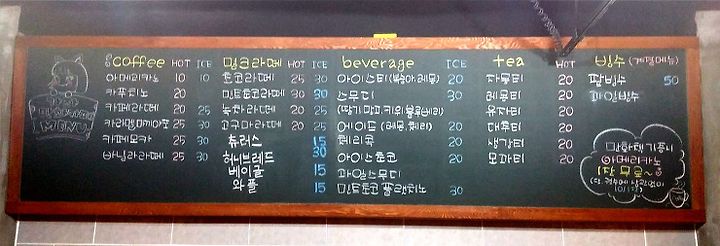 coffee HOT ICE
아메리카노 10 10
카푸치노 20
카페라떼 20 25
카라멜마끼아또 25 30
카페모카 25 30
바닐라라떼 25 30
밀크라떼 HOT ICE
초코라떼 25 30
민트초코라떼 30 30
녹차라떼 20 25
고구마라떼 20 25
츄러스 15
허니브레드 30
베이글 15
와플 15
beverage ICE
아이스티(복숭아,레몬) 20
스무디 30
(딸기,망고,키위,블루베리)
에이드 (레몬,체리) 20
체리콕 20
아이스초코 20
과일스무디
민트초코플랫치노 30
tea HOT
자몽티 20
레몬티 20
유자티 20
대추티 20
생강티 20
모과티 20
빙수 (계절메뉴)
팥빙수 50
과일빙수
MENU
만화책 기증시
아메리카노
1잔 무료~